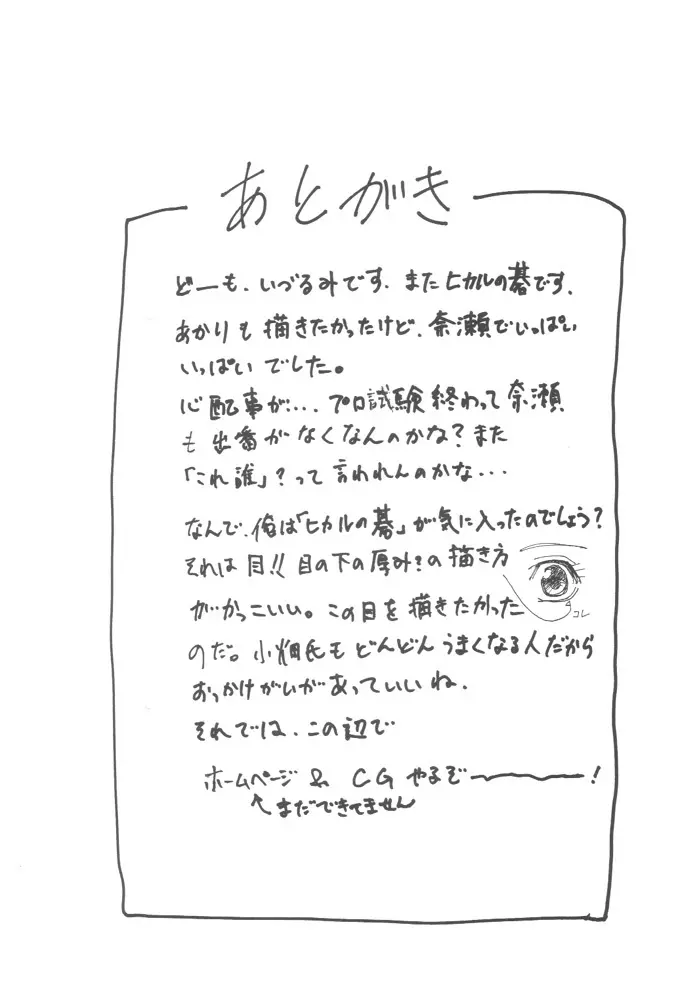 あとがき
どーも、いづるみです、またヒカルの碁です、
あかりも描きたかったけど、奈瀬でいっぱい
いっぱいでした。
心配事が…、プロ試験終わって奈瀬
も出番がなくなんのかな?また
「これ誰」?って言われんのかな…
なんで、俺は「ヒカルの碁」が気に入ったのでしょう?
それは目!!目の下の厚み?の描き方
がかっこいい。この目を描きたかった
コレ
のだ。小畑氏もどんどんうまくなる人だから
おっかけがいがあっていいね、
それでは、この辺で
ホームページ & CG やるぞ〜!
↑まだできてません